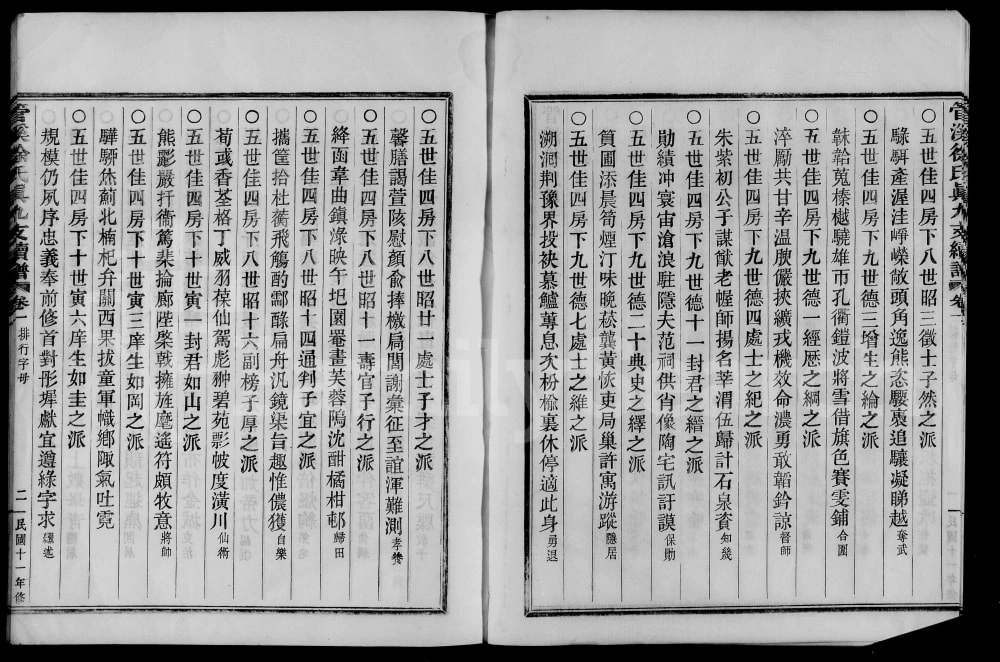 管溪徐氏眞九支續譜
○五世佳四房下八世昭三徵士子然之派
騄駬產渥洼崢嶸敧頭角逸熊忞騕褭追驤凝睇越奪武
○五世佳四房下九世德三增生之綸之派
韎韐蒐榛樾驍雄帀孔衢鎧波將雪借旗色賽雯鋪合圍
○五世佳四房下九世德一經歷之綱之派
淬勵共甘辛溫腴儼挾纊戎機效命濃勇敢韜鈐諒督師
○五世佳四房下九世德四處士之紀之派
朱紫初公子謀猷老幄師揚名莘渭伍歸計石泉資知幾
○五世佳四房下九世德十一封君之縉之派
勛績冲寰宙滄浪駐隱夫范祠供肖像陶宅訊訏謨保勛
○五世佳四房下九世德二十典史之繹之派
篔圃添晨筍煙汀味晚菘龔黃恢吏局巢許寓游蹤隱居
○五世佳四房下九世德七處士之維之派
溯洄荆豫界投袂慕鱸蓴息次枌楡裏休停適此身勇退
○五世佳四房下八世昭廿一處士子才之派
馨膳謁萱陔慰顏兪捧檄扃閭謝彙征至誼渾難測孝養
○五世佳四房下八世昭十一壽官子行之派
絳函章曲鎭淥映午圯園罨畫芙蓉隖沈酣橘柑邨歸田
○五世佳四房下八世昭十四通判子宜之派
攜筐拾杜蘅飛觴酌酃醁扁舟汎鏡渠旨趣惟儂獲自樂
○五世佳四房下八世昭十六副榜子厚之派
荀彧香荃格丁威羽葆仙駕彪翀碧苑影帔度潢川仙術
○五世佳四房下十世寅一封君如山之派
熊羆嚴扞衞篤棐掄廊陛棨戟擁旌麾遙符頗牧意將帥
○五世佳四房下十世寅三庠生如岡之派
驊騮烋薊北楠杞弁關西果拔童軍幟鄕陬氣吐霓
○五世佳四房下十世寅六庠生如圭之派
規模仍夙序忠義奉前修首對彤墀獻宜遵綠字求繩述
管溪徐氏眞九支續譜 卷一 排行字母 二 民國十一年修